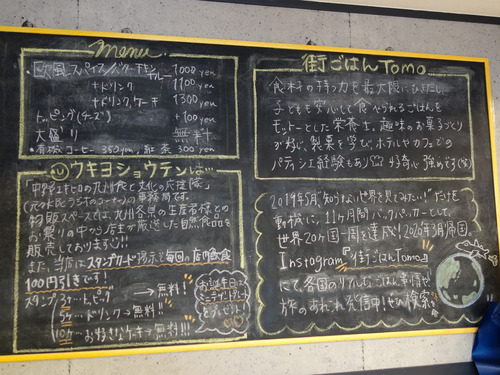 menu
・欧風スパイスバターチキンカレー 1000yen
+ドリンク 1100yen
+ドリンク,ケーキ 1300yen
トッピング(チーズ) +100yen
大盛り 無料
・有機コーヒー 350yen, 紅茶 300yen
ウキヨショウテンは…
「中野ヱキヒロの九州食と文化の
の事務局です。
物販スペースでは、九州各県の生産者様との
お繋りの中から店主が厳選した自然食品を
販売しております!!
また、当店はスタンプカード提示で毎回、店内飲食
100円引きです!
スタンプ 3ケ…トッピング → 無料!
5ケ…ドリンク→無料!!
10ケ…お好きなケーキ→無料!!!
お誕生日に
ミニデザートプレート
をプレゼント!
街ごはんTomo
食材の持つ力を最大限に活かし、
子どもも安心して食べられるごはんを
モットーとした栄養士。趣味のお菓子づくり
が好じ、製菓を学び、ホテルやカフェでの
パティシエ経験もあり 好奇心強めです(笑)
2019年5月、"知らない世界を見てみたい!"だけを
動機に、11ヶ月間バックパッカーとして、
世界20ヶ国一周を達成!2020年3月帰国
Instagram『街ごはんTomo』
にて、各国のリアルごはん事情や
旅のあれこれ発信中!ぜひ検索